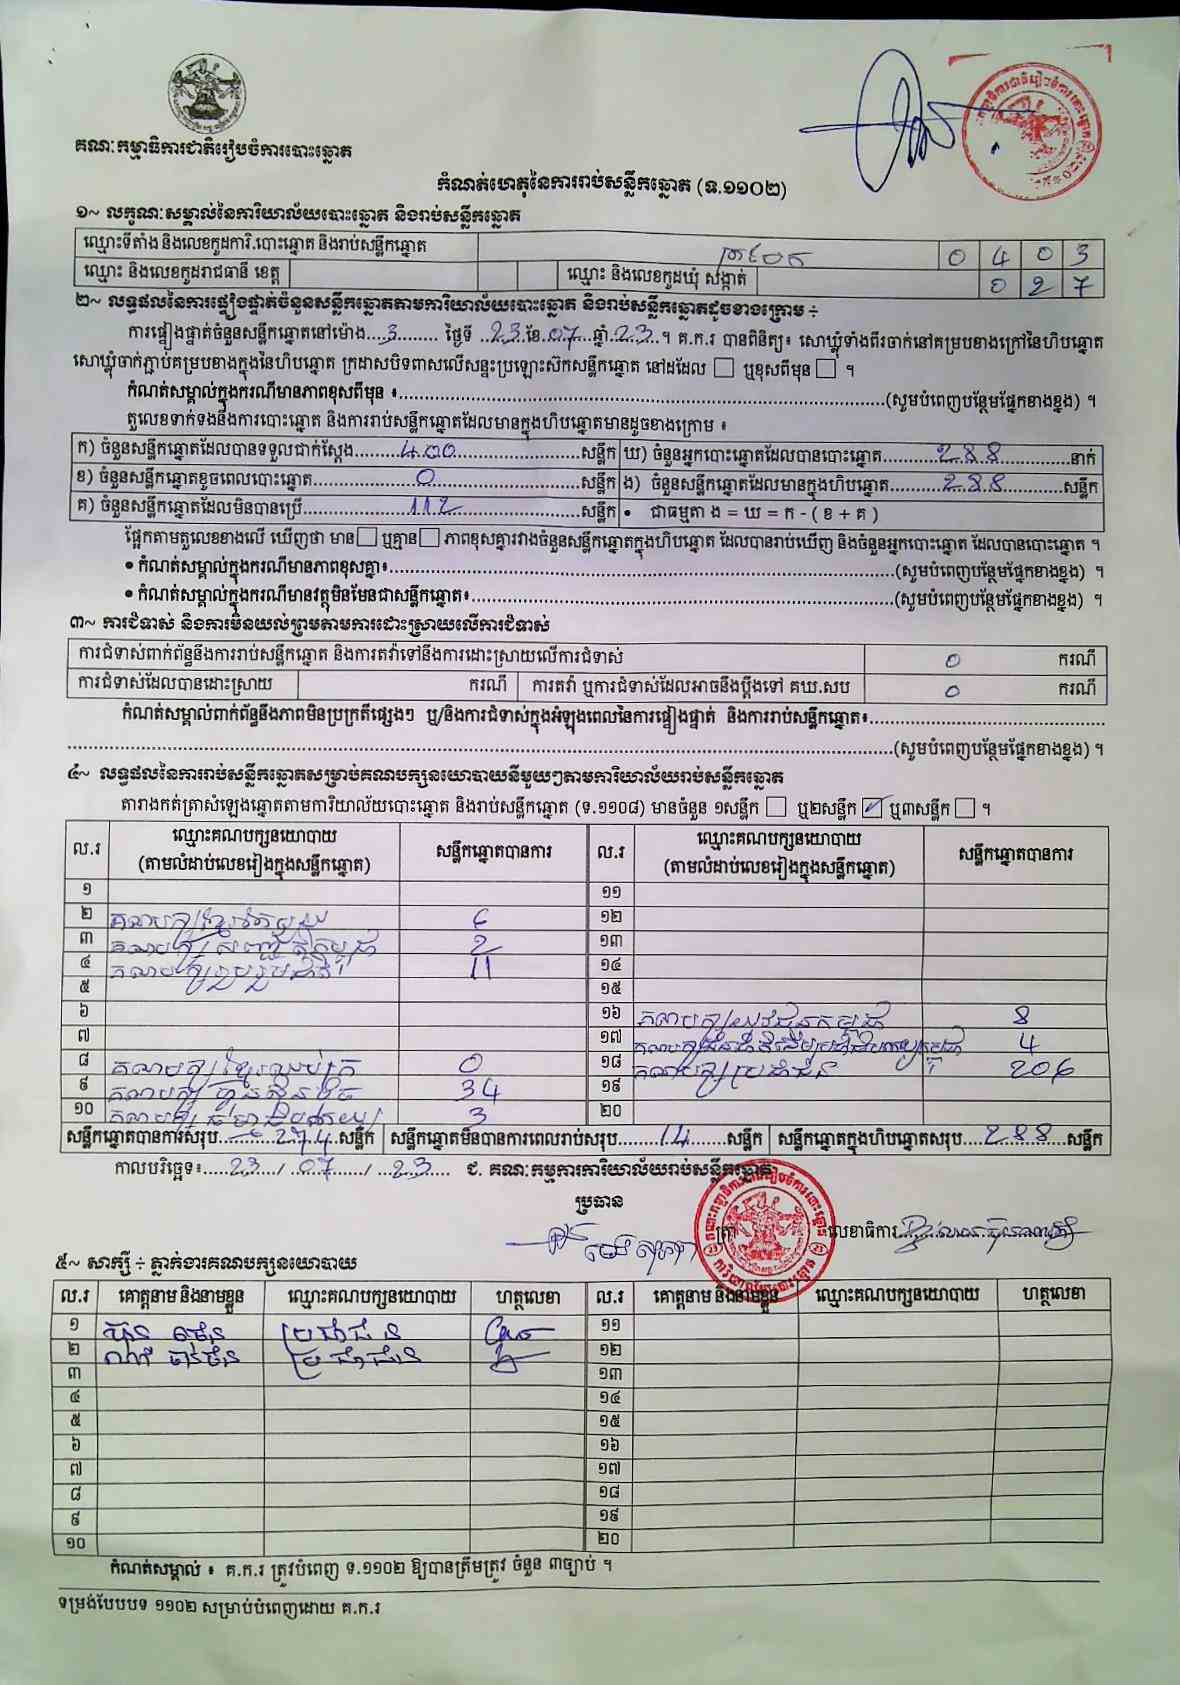 គណៈកម្មាធិការជាតិរៀបចំការបោះឆ្នោត
កំណត់ហេតុនៃការរាប់សន្លឹកឆ្នោត (ទ.១១០២)
១~ លក្ខណៈសម្គាល់នៃការិយាល័យបោះឆ្នោត និងរាប់សន្លឹកឆ្នោត
ឈ្មោះទីតាំង និងលេខកូដការិ.បោះឆ្នោត និងរាប់សន្លឹកឆ្នោត 0 4 0 3
ឈ្មោះ និងលេខកូដរាជធានី ខេត្ត ឈ្មោះ និងលេខកូដឃុំ សង្កាត់ 0 2 7
២~ លទ្ធផលនៃការផ្ទៀងផ្ទាត់ចំនួនសន្លឹកឆ្នោតតាមការិយាល័យបោះឆ្នោត និងរាប់សន្លឹកឆ្នោតដូចខាងក្រោម ÷
ការផ្ទៀងផ្ទាត់ចំនួនសន្លឹកឆ្នោតនៅម៉ោង...3........ ថ្ងៃទី ..23..ខែ.07.....ឆ្នាំ.23...។ គ.ក.រ បានពិនិត្យ៖ សោឃ្លុំទាំងពីរចាក់នៅគម្របខាងក្រៅនៃហិបឆ្នោត
សោឃ្លុំចាក់ភ្ជាប់គម្របខាងក្នុងនៃហិបឆ្នោត ក្រដាសបិទពាសលើសន្ទះប្រឡោះស៊កសន្លឹកឆ្នោត នៅដដែល ☐ ឬខុសពីមុន ☐ ។
កំណត់សម្គាល់ក្នុងករណីមានភាពខុសពីមុន ៖..........(សូមបំពេញបន្ថែមផ្នែកខាងខ្នង) ។
តួលេខទាក់ទងនឹងការបោះឆ្នោត និងការរាប់សន្លឹកឆ្នោតដែលមានក្នុងហិបឆ្នោតមានដូចខាងក្រោម ៖
ក) ចំនួនសន្លឹកឆ្នោតដែលបានទទួលជាក់ស្តែង........400........សន្លឹក ឃ) ចំនួនអ្នកបោះឆ្នោតដែលបានបោះឆ្នោត........288........នាក់
ខ) ចំនួនសន្លឹកឆ្នោតខូចពេលបោះឆ្នោត........0........សន្លឹក ង) ចំនួនសន្លឹកឆ្នោតដែលមានក្នុងហិបឆ្នោត........288........សន្លឹក
គ) ចំនួនសន្លឹកឆ្នោតដែលមិនបានប្រើ........112........សន្លឹក • ជាធម្មតា ង = ឃ = ក - ( ខ + គ )
ផ្អែកតាមតួលេខខាងលើ ឃើញថា មាន☐ ឬគ្មាន☐ ភាពខុសគ្នារវាងចំនួនសន្លឹកឆ្នោតក្នុងហិបឆ្នោត ដែលបានរាប់ឃើញ និងចំនួនអ្នកបោះឆ្នោត ដែលបានបោះឆ្នោត ។
• កំណត់សម្គាល់ក្នុងករណីមានភាពខុសគ្នា៖..........(សូមបំពេញបន្ថែមផ្នែកខាងខ្នង) ។
• កំណត់សម្គាល់ក្នុងករណីមានវត្ថុមិនមែនជាសន្លឹកឆ្នោត៖..........(សូមបំពេញបន្ថែមផ្នែកខាងខ្នង) ។
៣~ ការជំទាស់ និងការមិនយល់ព្រមតាមការដោះស្រាយលើការជំទាស់
ការជំទាស់ពាក់ព័ន្ធនឹងការរាប់សន្លឹកឆ្នោត និងការតវ៉ាទៅនឹងការដោះស្រាយលើការជំទាស់ 0 ករណី
ការជំទាស់ដែលបានដោះស្រាយ ករណី ការតវ៉ា ឬការជំទាស់ដែលអាចនឹងប្តឹងទៅ គឃ.សប 0 ករណី
កំណត់សម្គាល់ពាក់ព័ន្ធនឹងភាពមិនប្រក្រតីផ្សេងៗ ឬ/និងការជំទាស់ក្នុងអំឡុងពេលនៃការផ្ទៀងផ្ទាត់ និងការរាប់សន្លឹកឆ្នោត៖..........
..........(សូមបំពេញបន្ថែមផ្នែកខាងខ្នង) ។
៤~ លទ្ធផលនៃការរាប់សន្លឹកឆ្នោតសម្រាប់គណបក្សនយោបាយនីមួយៗតាមការិយាល័យរាប់សន្លឹកឆ្នោត
តារាងកត់ត្រាសំឡេងឆ្នោតតាមការិយាល័យបោះឆ្នោត និងរាប់សន្លឹកឆ្នោត (ទ.១១០៨) មានចំនួន ១សន្លឹក ☐ ឬ២សន្លឹក ☑ ឬ៣សន្លឹក ☐ ។
ល.រ ឈ្មោះគណបក្សនយោបាយ (តាមលំដាប់លេខរៀងក្នុងសន្លឹកឆ្នោត) សន្លឹកឆ្នោតបានការ ល.រ ឈ្មោះគណបក្សនយោបាយ (តាមលំដាប់លេខរៀងក្នុងសន្លឹកឆ្នោត) សន្លឹកឆ្នោតបានការ
១ ១១
២ គណបក្សខ្មែរ 6 ១២
៣ គណបក្ស សញ្ជាតិកម្ពុជា 2 ១៣
៤ គណបក្សរួបរួមជាតិ 11 ១៤
៥ ១៥
៦ ១៦ គណបក្សយុវជនកម្ពុជា 8
៧ ១៧ 4
៨ គណបក្ស ខ្មែរឈប់ក្រ 0 ១៨ គណបក្សប្រជាជន 206
៩ គណបក្ស ហ្វ៊ុនស៊ិនប៉ិច 34 ១៩
១០ 3 ២០
សន្លឹកឆ្នោតបានការសរុប........274.សន្លឹក សន្លឹកឆ្នោតមិនបានការពេលរាប់សរុប........14......សន្លឹក សន្លឹកឆ្នោតក្នុងហិបឆ្នោតសរុប....288......សន្លឹក
កាលបរិច្ឆេទ៖....23.../.07...../...23.... ជ. គណៈកម្មការការិយាល័យរាប់សន្លឹកឆ្នោត
ប្រធាន
ត្រា លេខាធិការ
៥~ សាក្សី ÷ ភ្នាក់ងារគណបក្សនយោបាយ
ល.រ គោត្តនាម និងនាមខ្លួន ឈ្មោះគណបក្សនយោបាយ ហត្ថលេខា ល.រ គោត្តនាម និងនាមខ្លួន ឈ្មោះគណបក្សនយោបាយ ហត្ថលេខា
១ ប្រជាជន ១១
២ ប្រជាជន ១២
៣ ១៣
៤ ១៤
៥ ១៥
៦ ១៦
៧ ១៧
៨ ១៨
៩ ១៩
១០ ២០
កំណត់សម្គាល់ ៖ គ.ក.រ ត្រូវបំពេញ ទ.១១០២ ឱ្យបានត្រឹមត្រូវ ចំនួន ៣ច្បាប់ ។
ទម្រង់បែបបទ ១១០២ សម្រាប់បំពេញដោយ គ.ក.រ